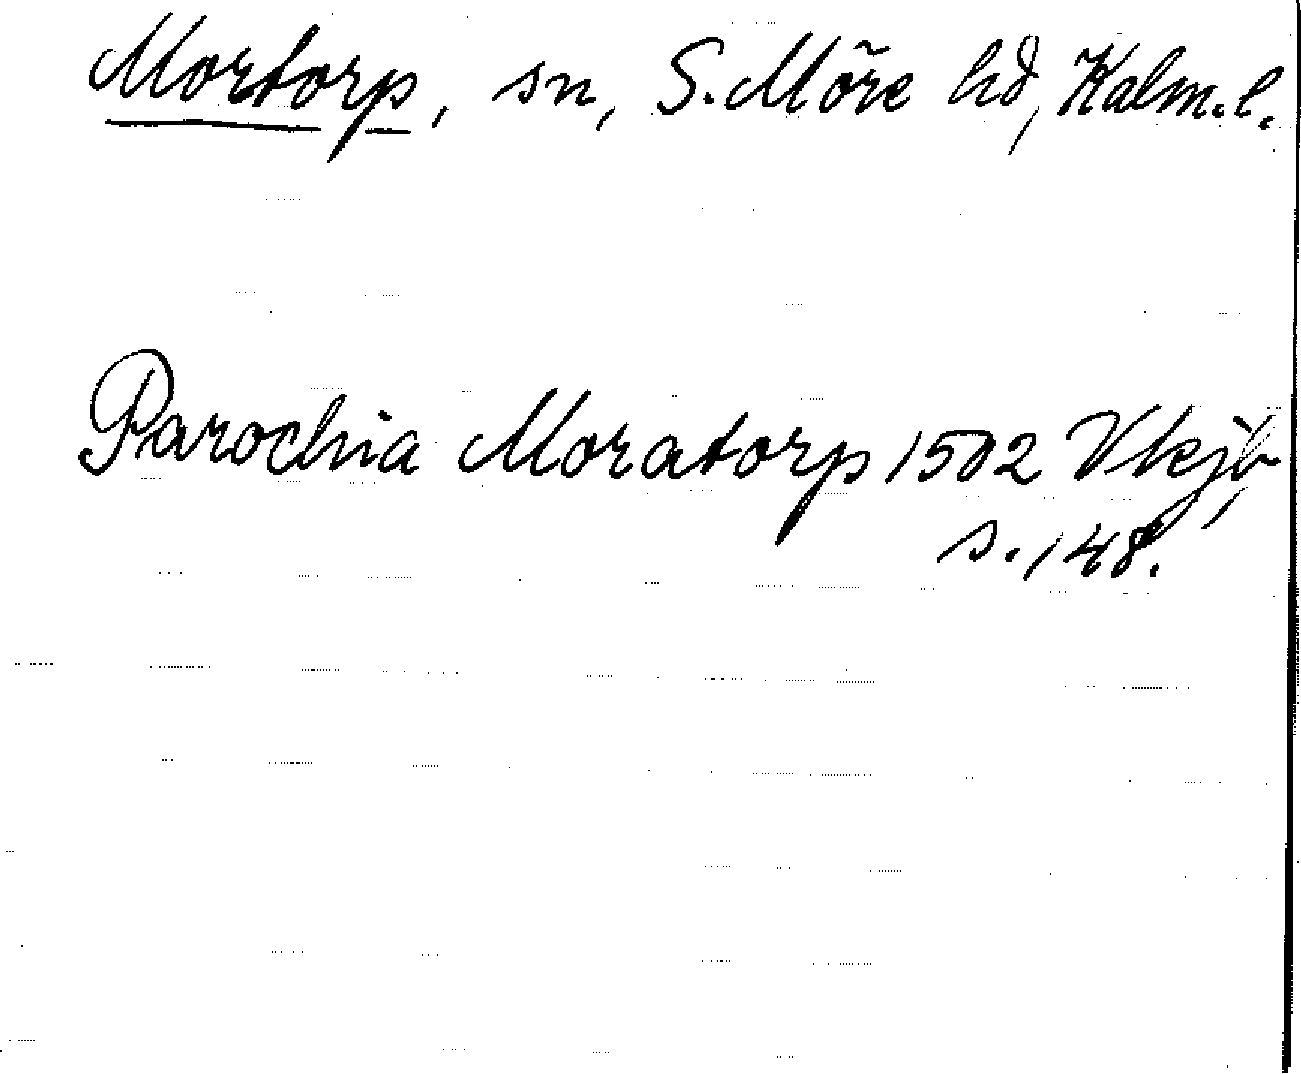 Mortorp, sn, S. Möre hd, Kalm. l.
Parochia Moratorp 1502 Vkjb,
s. 148.